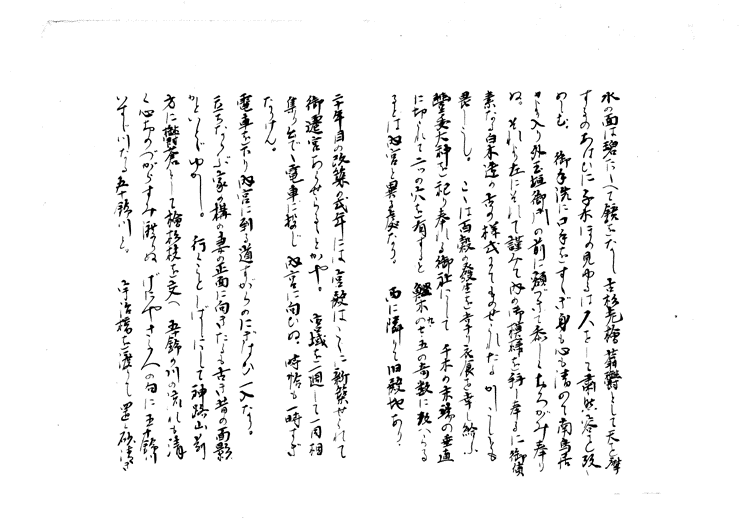 水の面は碧たゝへて鏡をなし古杉老檜蓊鬱として天を摩
すそのあはひに千木ほの見ゆるは人をして粛然容を改
めしむ 御手洗に口手をすゝぎ身も心も清めて南鳥居
より入り外玉垣御門の前に額づきて恭しくをろがみ奉り
ぬ。それより左にそれて謹みて内の御模様を拝し奉るに御質
素なる白木造の古き様式にてませられたる かしこしとも
畏しこし。こは百穀の発生を幸り衣食を幸し給ふ
豊受大神を祀り奉れる御社にして 千木の末端の垂直
に切られて二つの穴を有すると 鰹木の九の奇数に数へらる
るとは内宮と異る処なり。 西に隣りて旧殿地あり、
二十年目の改築の式年には 宮殿はこゝに新築せられて
御遷宮あらせらるゝとかや。 宮域を一囲して一同相
集り出でゝ電車に投じ 内宮に向ひぬ、時恰も一時すぎ
なりけん。
電車を下り内宮に到る道すがらのにぎはひ一入なり。
立ちならぶ家の棟の妻の正面に向きたるも古き昔の面影
かといとゞゆかし。 行くことしばしにして神路山前
方に鬱蒼として檜杉枝を交へ 五鈴川の流れも清
く心おのづからすみ渡りぬ げにやさき人の句に五十鈴川
いすゞ川なる五十鈴川と。 宇治橋を渡りて置く砂清き